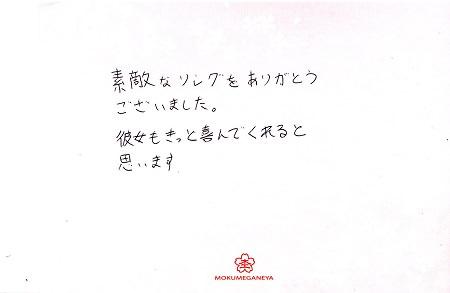 素敵なリングをありがとう
ございました。
彼女もきっと喜んでくれると
思います
MOKUMEGANEYA